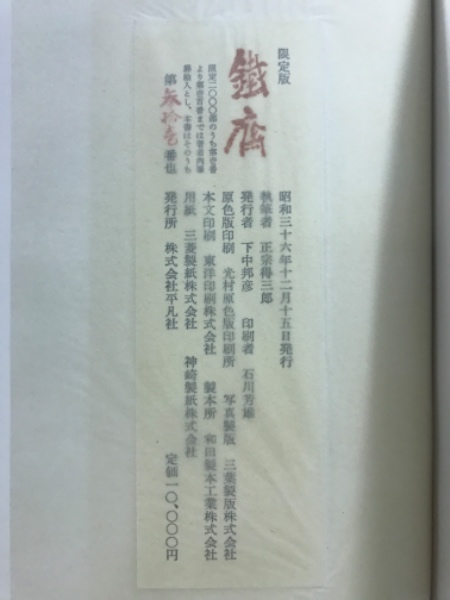 限定版
鐵齋
限定二〇〇〇部のうち第壱番
より第壱百番までは著者肉筆
挿絵入とし、本書はそのうち
第 参拾壱 番也
昭和三十六年十二月十五日発行
執筆者 正宗得三郎
発行者 下中邦彦 印刷者 石川芳雄
原色版印刷 光村原色版印刷所 写真製版 三葉製版株式会社
本文印刷 東洋印刷株式会社 製本所 和田製本工業株式会社
用紙 三菱製紙株式会社 神崎製紙株式会社
発行所 株式会社平凡社 定価一〇、〇〇〇円